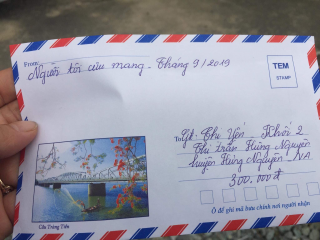 From:
Người tôi cưu mang - Tháng 9/2019
TEM
STAMP
To: Gửi: Chị Yến - Khối 2
Thị trấn Hưng Nguyên
huyện Hưng Nguyên - NA
300.000đ
Cầu Tràng Tiền
Ô để ghi mã bưu chính nơi người nhận